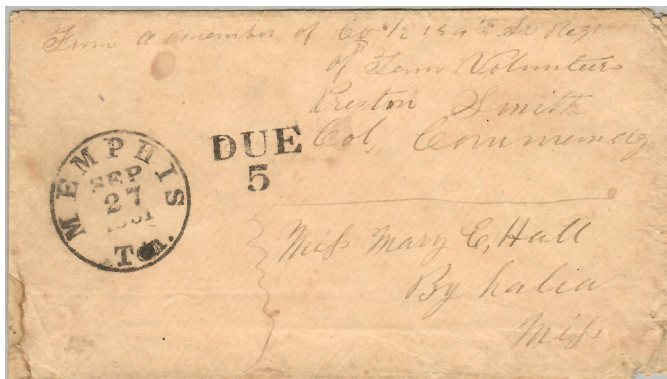 From a member of Co 154th Sr Regt
of Tenn Volunteers
Preston Smith
Col, Commandg
DUE
5
MEMPHIS
SEP
27
1861
Ten.
Miss Mary E, Hall
Byhalia
Miss